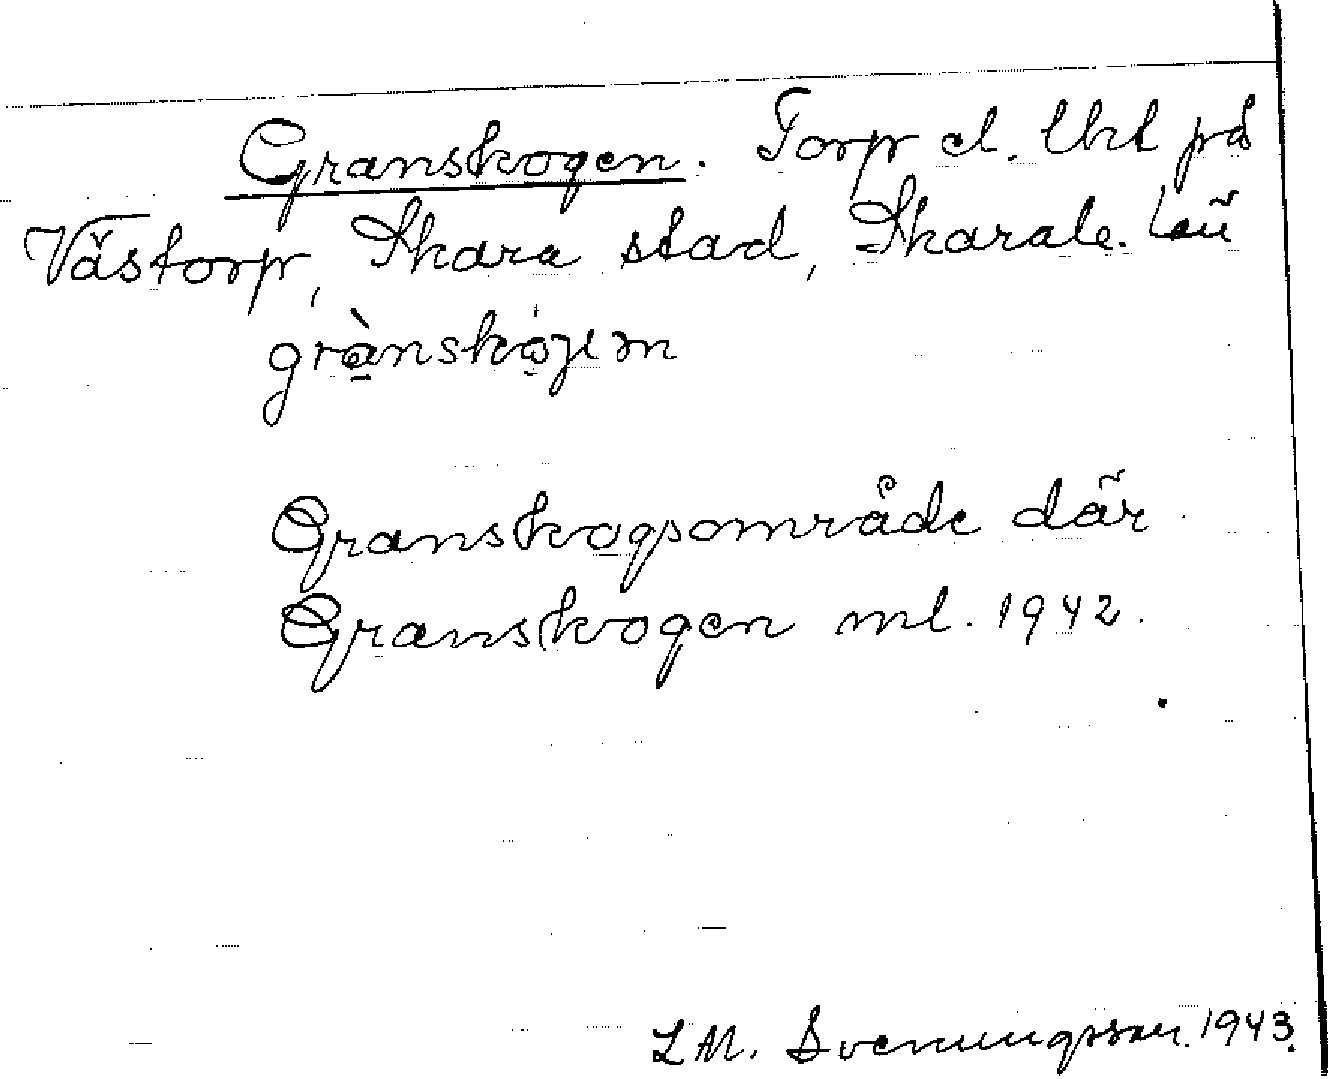 Granskogen. Torp el. lht på
Västorp, Skara stad, Skarab. län
grànskọ́ʒen
Granskogsområde där
Granskogen ml. 1942.
L M. Svenungsson. 1943.